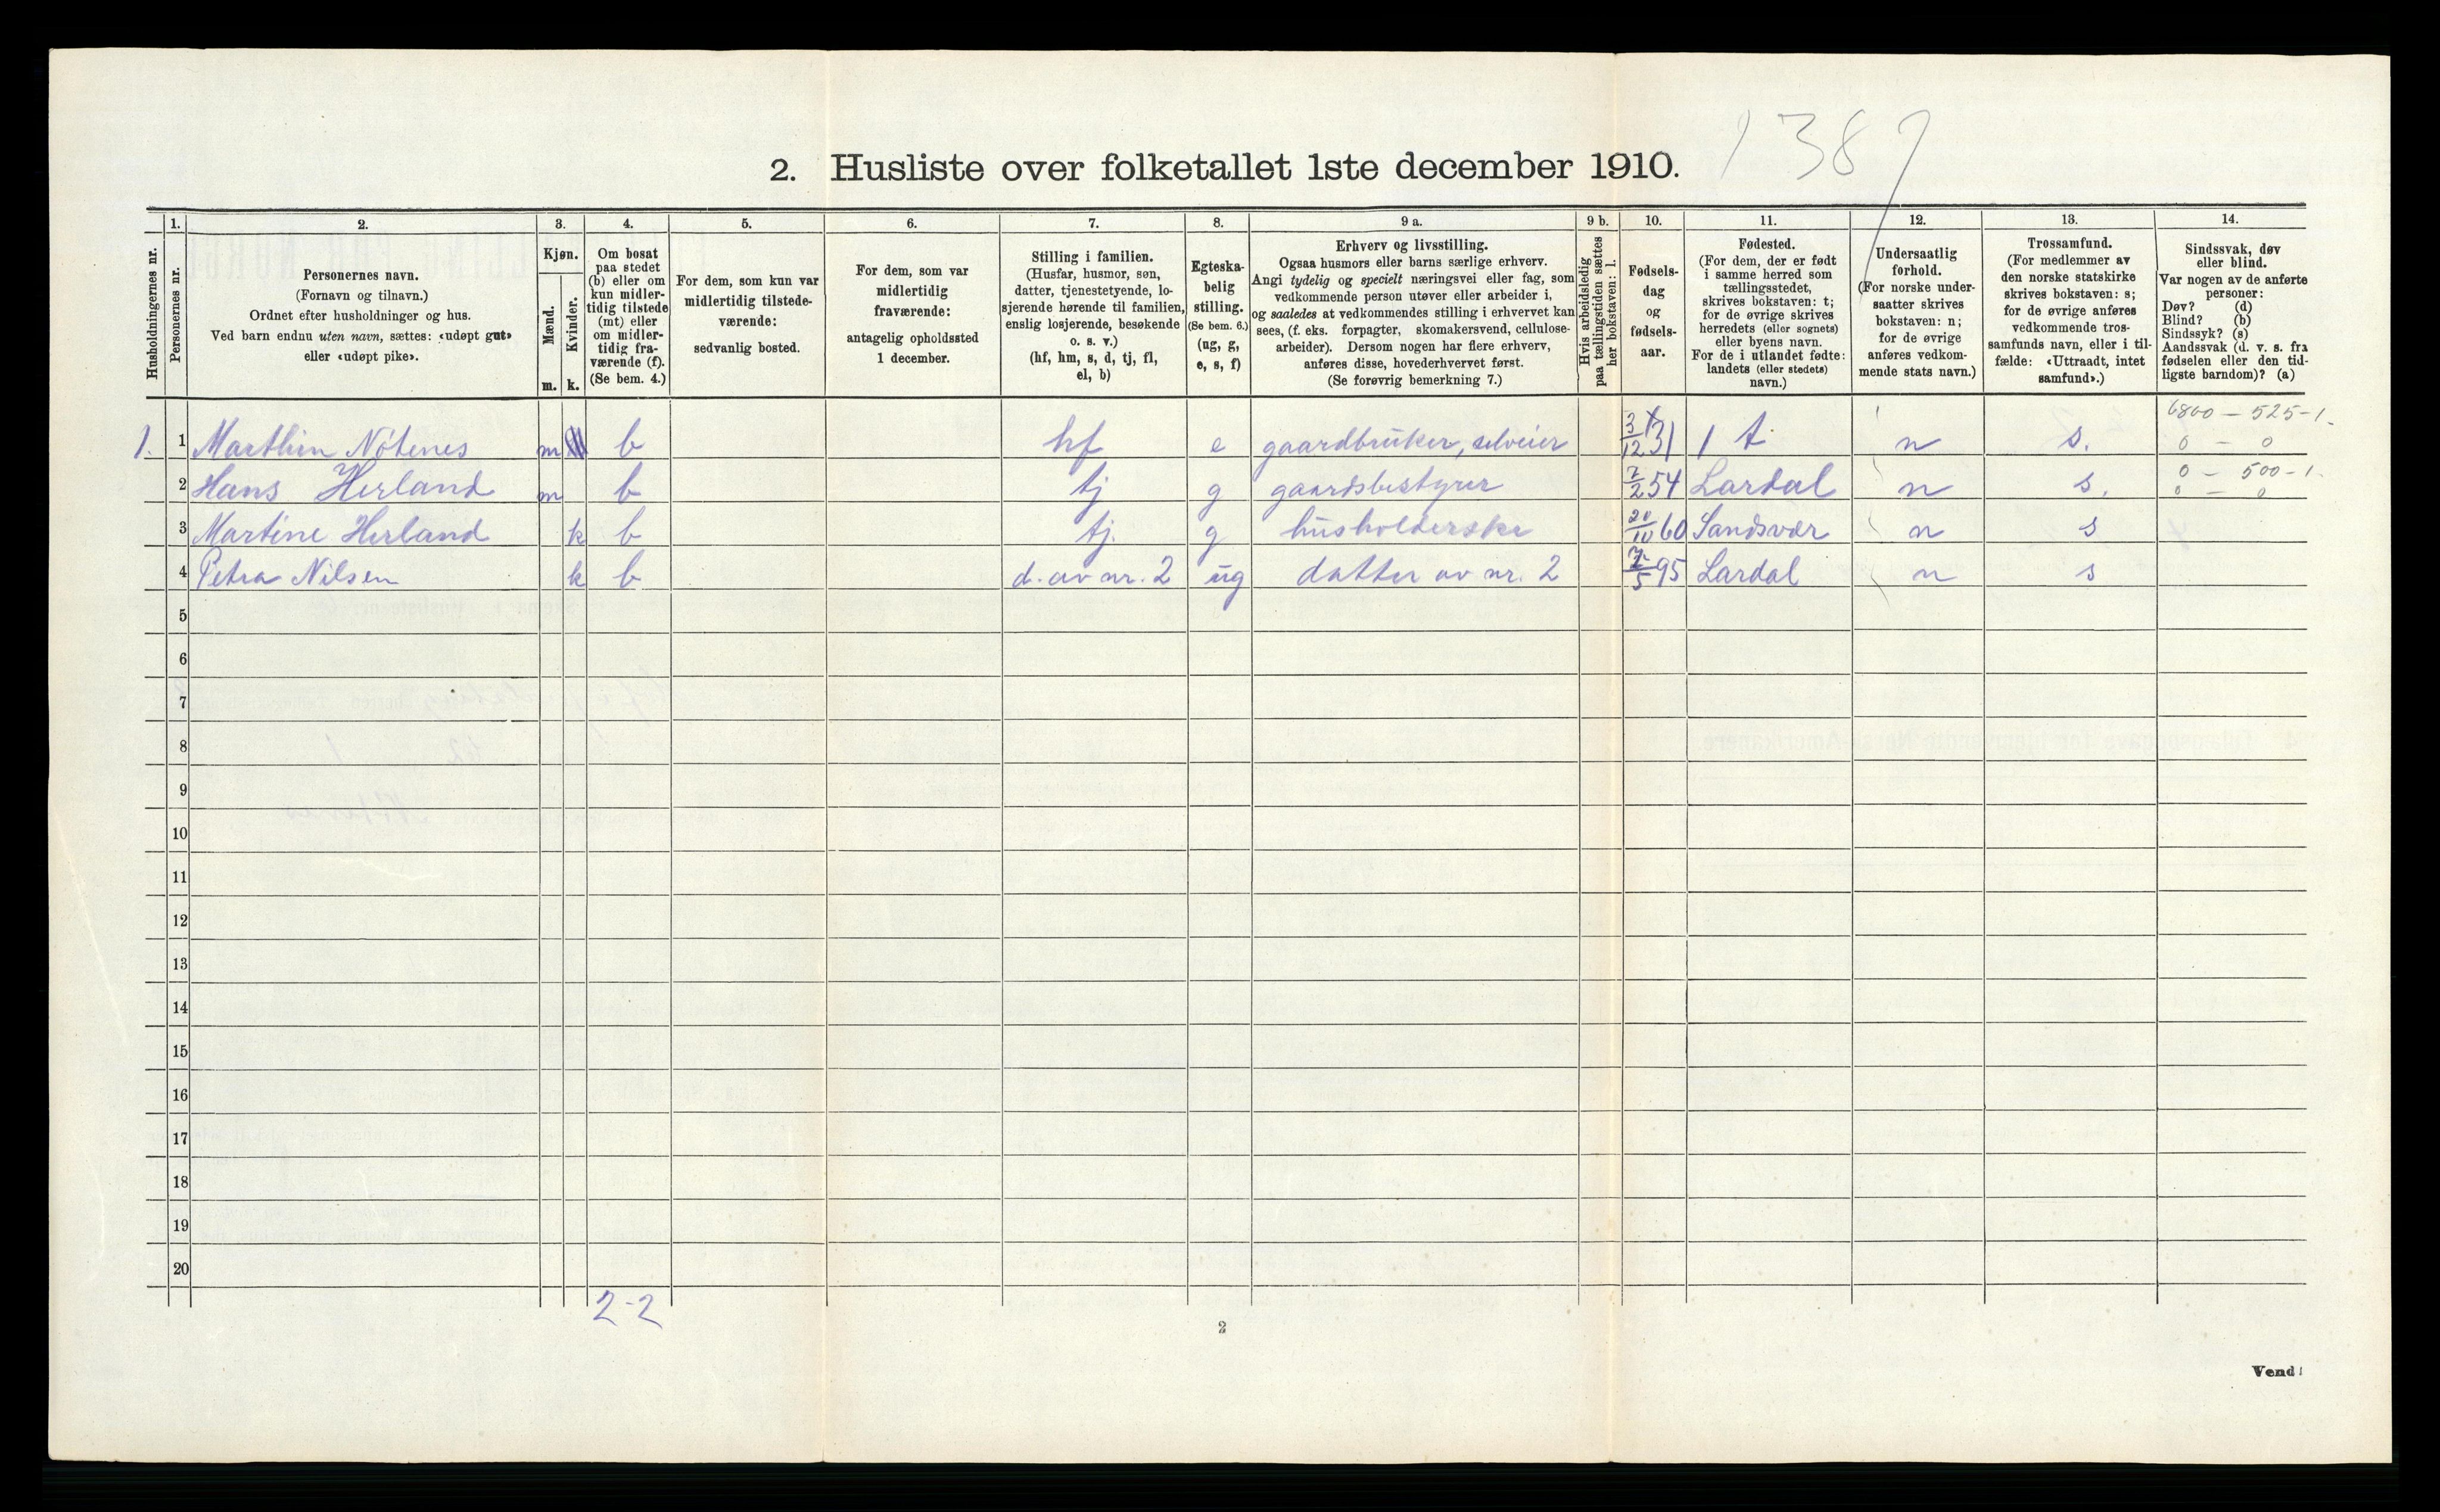 1389
2. Husliste over folketallet 1ste december 1910.
Husholdningernes nr.
1.
Personernes nr.
2.
Personernes navn.
(Fornavn og tilnavn.)
Ordnet efter husholdninger og hus.
Ved barn endnu uten navn, sættes: «udøpt gut»
eller «udøpt pike».
3.
Kjøn.
Mænd.
Kvinder.
m. k.
4.
Om bosat
paa stedet
(b) eller om
kun midler-
tidig tilstede
(mt) eller
om midler-
tidig fra-
værende (f).
(Se bem. 4.)
5.
For dem, som kun var
midlertidig tilstede-
værende:
sedvanlig bosted.
6.
For dem, som var
midlertidig
fraværende:
antagelig opholdssted
1 december.
7.
Stilling i familien.
(Husfar, husmor, søn,
datter, tjenestetyende, lo-
sjerende hørende til familien,
enslig losjerende, besøkende
o. s. v.)
(hf, hm, s, d, tj, fl,
el, b)
8.
Egteska-
belig
stilling.
(Se bem. 6.)
(ug, g,
e, s, f)
9 a.
Erhverv og livsstilling.
Ogsaa husmors eller barns særlige erhverv.
Angi tydelig og specielt næringsvei eller fag, som
vedkommende person utøver eller arbeider i,
og saaledes at vedkommendes stilling i erhvervet kan
sees, (f. eks. forpagter, skomakersvend, cellulose-
arbeider). Dersom nogen har flere erhverv,
anføres disse, hovederhvervet først.
(Se forøvrig bemerkning 7.)
9 b.
Hvis arbeidsledig
paa tællingstiden sættes
her bokstaven: l.
10.
Fødsels-
dag
og
fødsels-
aar.
11.
Fødested.
(For dem, der er født
i samme herred som
tællingsstedet,
skrives bokstaven: t;
for de øvrige skrives
herredets (eller sognets)
eller byens navn.
For de i utlandet fødte:
landets (eller stedets)
navn.)
12.
Undersaatlig
forhold.
(For norske under-
saatter skrives
bokstaven: n;
for de øvrige
anføres vedkom-
mende stats navn.)
13.
Trossamfund.
(For medlemmer av
den norske statskirke
skrives bokstaven: s;
for de øvrige anføres
vedkommende tros-
samfunds navn, eller i til-
fælde: «Uttraadt, intet
samfund».)
14.
Sindssvak, døv
eller blind.
Var nogen av de anførte
personer:
Døv? (d)
Blind? (b)
Sindssyk? (s)
Aandssvak (d. v. s. fra
fødselen eller den tid-
ligste barndom)? (a)
6800 - 525-1.
1. 1 Marthin Nøtenes m b hf e gaardbruker, selveier 3/12 31 t n s. 0 - 0
0 - 500-1.
2 Hans Herland m b tj g gaardsbestyrer 7/2 54 Lardal n s. 0 - 0
3 Martine Herland k b tj. g husholderske 20/10 60 Sandsvær n s
4 Petra Nilsen k b d. av nr. 2 ug datter av nr. 2 7/5 95 Lardal n s
5
6
7
8
9
10
11
12
13
14
15
16
17
18
19
20
2-2
2
Vend!